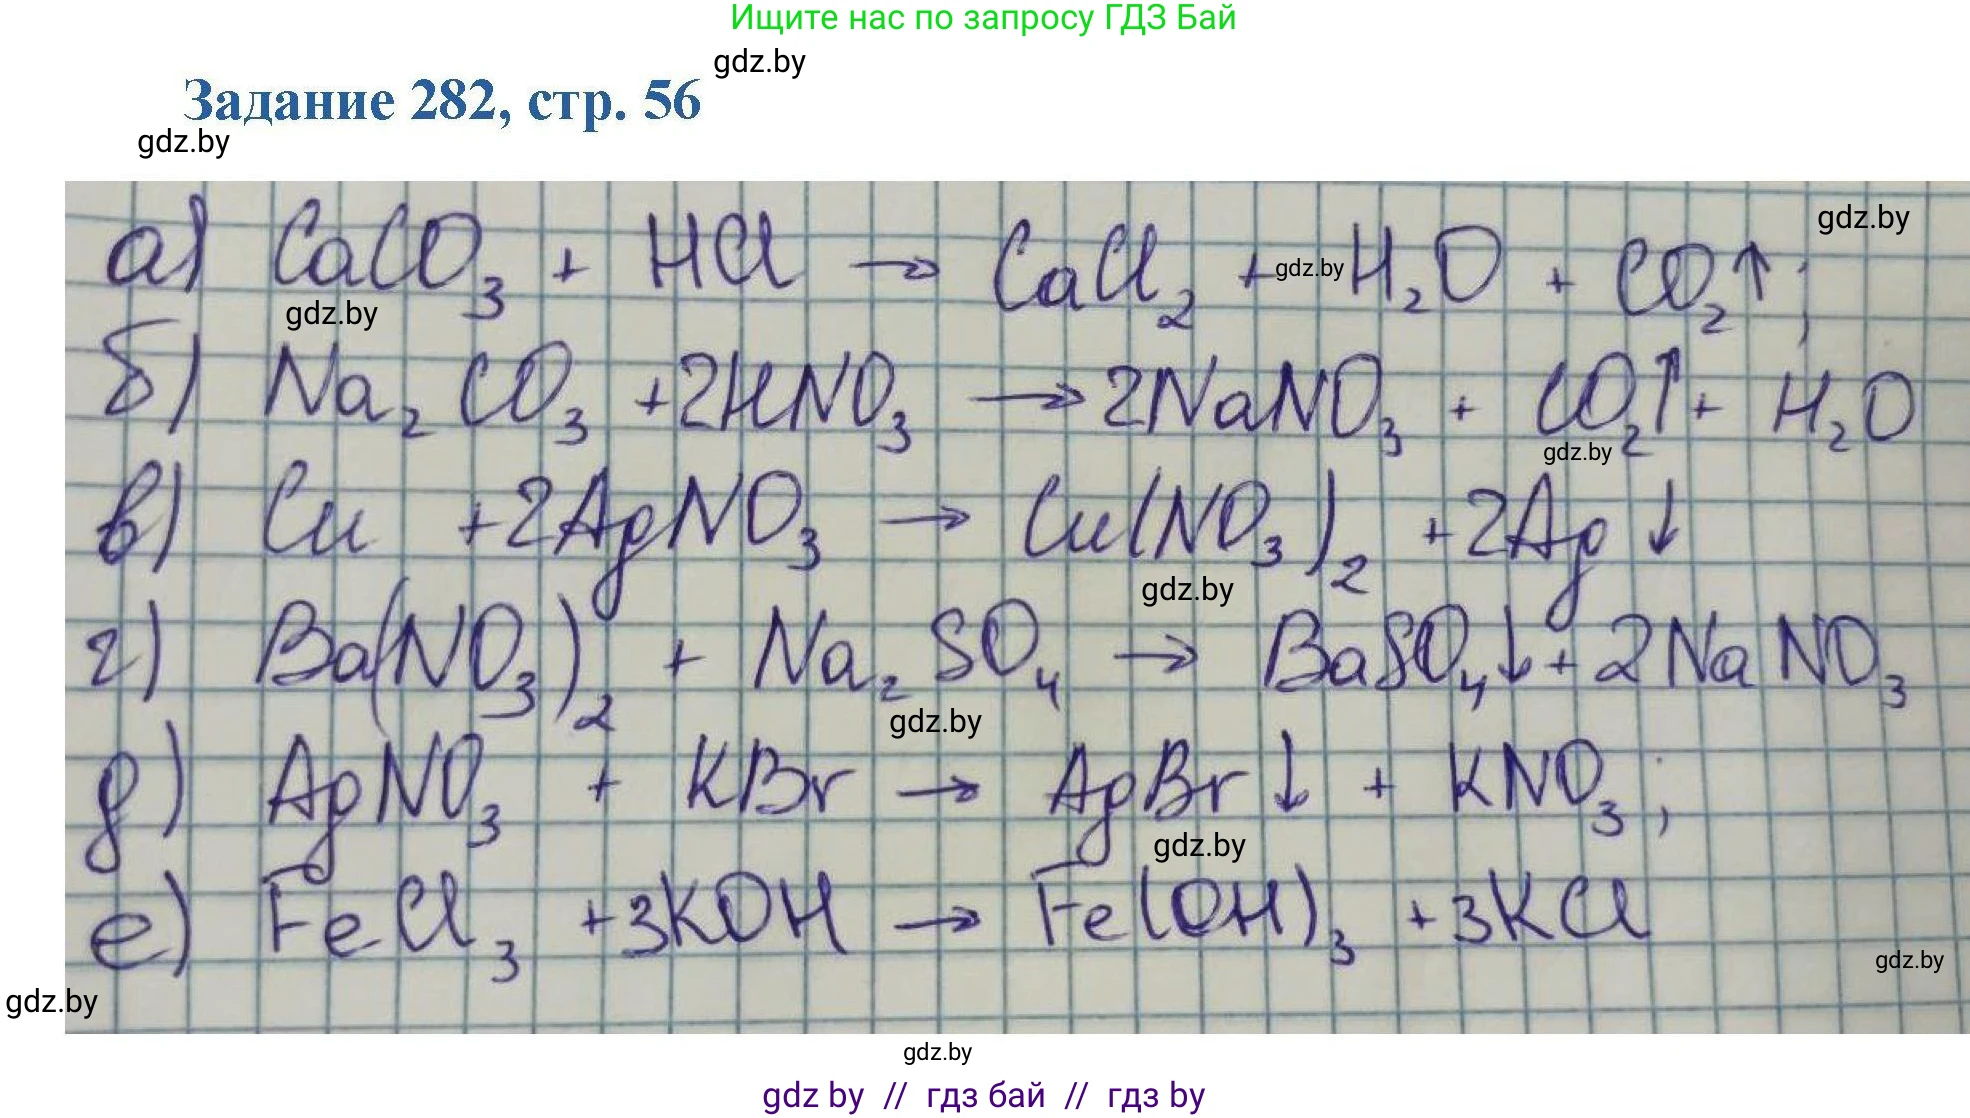 Ищите нас по запросу ГДЗ Бай
gdz.by
Задание 282, стр. 56
gdz.by
gdz.by
а) CaCO₃ + HCl → CaCl₂ + H₂O + CO₂↑;
gdz.by
gdz.by
б) Na₂CO₃ + 2HNO₃ → 2NaNO₃ + CO₂↑ + H₂O
gdz.by
в) Cu + 2AgNO₃ → Cu(NO₃)₂ + 2Ag↓
gdz.by
г) Ba(NO₃)₂ + Na₂SO₄ → BaSO₄↓ + 2NaNO₃
gdz.by
д) AgNO₃ + KBr → AgBr↓ + KNO₃;
gdz.by
е) FeCl₃ + 3KOH → Fe(OH)₃ + 3KCl
gdz.by
gdz.by
gdz.by
gdz by // гдз бай // гдз by